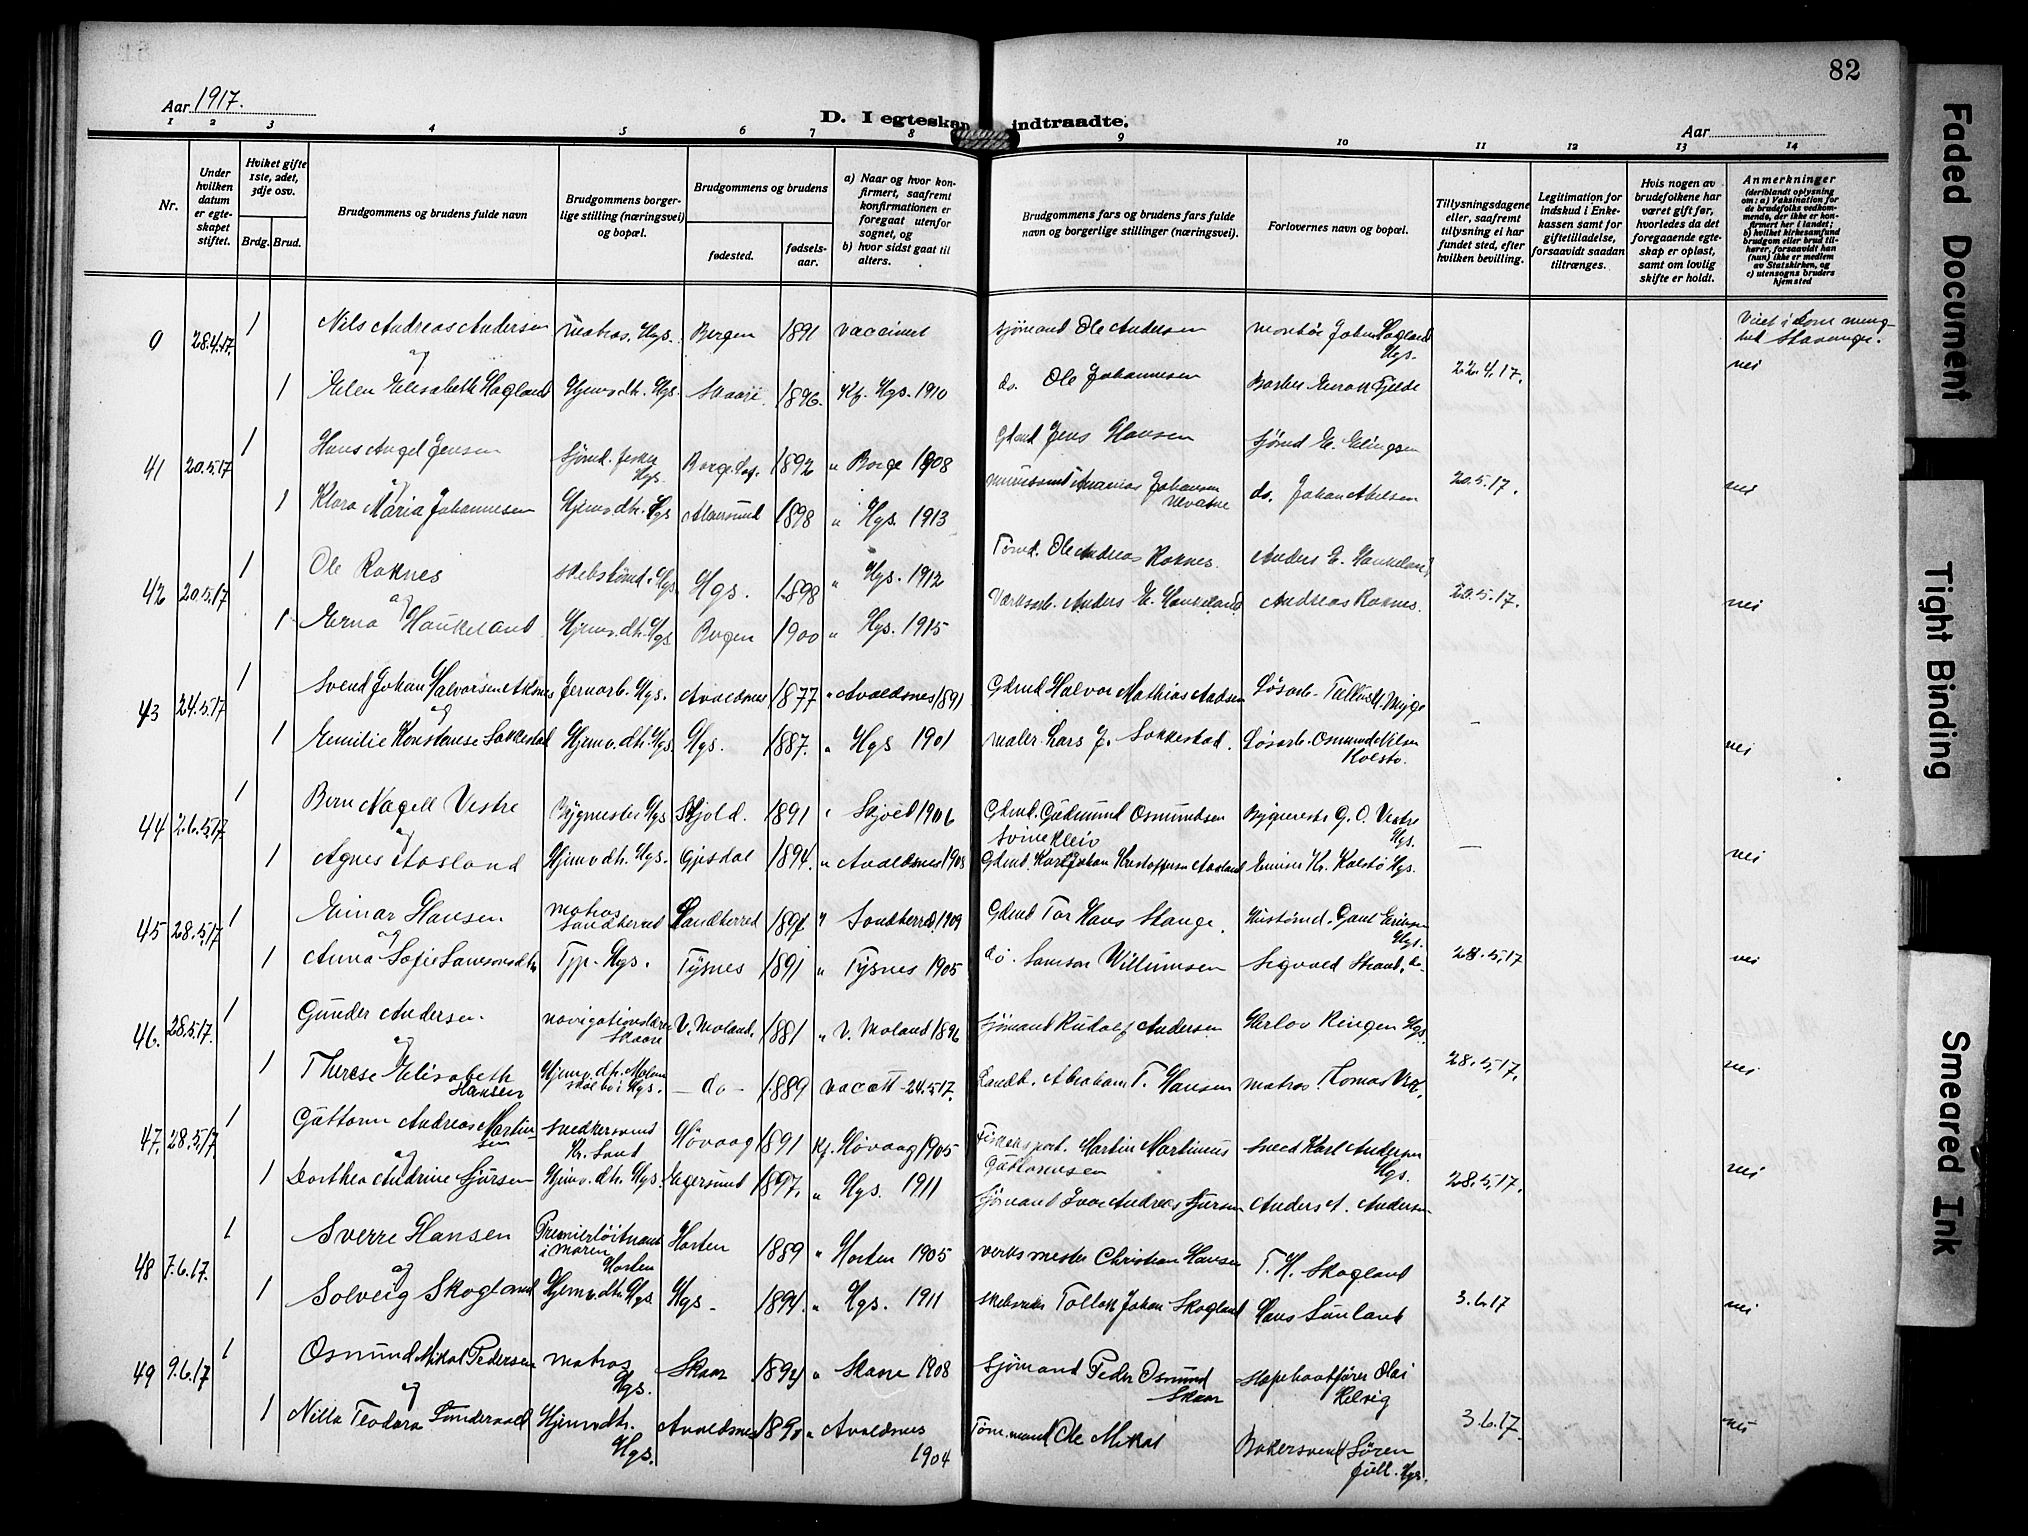 82
Aar 1917.
D. I egteskap indtraadte.
Aar
1 2 3 4 5 6 7 8 9 10 11 12 13 14
Nr.
Under hvilken datum er egteskapet stiftet.
Hvilket gifte 1ste, 2det, 3dje osv.
Brdg. Brud.
Brudgommens og brudens fulde navn
Brudgommens borgerlige stilling (næringsvei) og bopæl.
Brudgommens og brudens
fødested.
fødselsaar.
a) Naar og hvor konfirmert, saafremt konfirmationen er foregaat utenfor sognet, og
b) hvor sidst gaat til alters.
Brudgommens fars og brudens fars fulde navn og borgerlige stillinger (næringsvei).
Forlovernes navn og bopæl.
Tillysningsdagene eller, saafremt tillysning ei har fundet sted, efter hvilken bevilling.
Legitimation for indskud i Enkekassen samt for giftetilladelse, forsaavidt saadan tiltrænges.
Hvis nogen av brudefolkene har været gift før, hvorledes da det foregaaende egteskap er opløst, samt om lovlig skifte er holdt.
Anmerkninger
(deriblandt oplysning om: a) Vaksination for de brudefolks vedkommende, der ikke er konfirmert her i landet; b) hvilket kirkesamfund brudgom eller brud tilhører, forsaavidt han (hun) ikke er medlem av Statskirken, og c) utensogns bruders hjemsted
0 28.4.17. 1 Nils Andreas Andersen matros, Hgs. Bergen 1891 vaccinert sjømand Ole Andersen montør Johan Hagland Hgs. Viet i
og
1 Elen Elisabeth Hagland Hjemv. dh. Hgs. Skaare 1896. Kf. Hgs. 1910 do. Ole Johannesen Barber Enok Fjelde 22.4.17. nei
41 20.5.17 1 Hans Angel Jensen Sjømd. Hgs. Borge 1892 " Borge 1908 Gdmd Jens Hansen Sjømd E. Elingsen
og
1 Klara Maria Johannesen Hjemv. dh. Hgs Alversund 1898 " Hgs. 1913 Johansen do. Johan Abelsen 20.5.17. nei
42 20.5.17 1 Ole Roknes Hgs. Hgs. 1898 " Hgs. 1912 Tømd. Ole Andreas Roknes. Anders E. Haukeland
og
1 Erna Haukeland Hjemv. dh. Hgs Bergen 1900 " Hgs. 1915 Verksarb. Anders E. Haukeland Andreas Roknes. 20.5.17. nei
43 24.5.17 1 Svend Johan Halvorsen Aksnes Jernarb. Hgs. Avaldsnes 1877 " Avaldsnes 1891 Gdmd Halvor Mathias Løsarb. Mygge
og
1 Emilie Konstanse Sakkestad Hjemv. dh. Hgs Hgs. 1887. " Hgs 1901 maler Lars J. Sakkestad. Løsarb. Osmund Nilsen Kolstø. - nei
44 26.5.17 1 Nagell Vestre Bygmester Hgs Skjold. 1891 " Skjold 1906 Gdmd. Gudmund Osmundsen Svinekleiv Bygmester G. O. Vestre Hgs.
og
1 Agnes Aasland Hjemv. dh. Hgs. Gjesdal 1894. " Avaldsnes Gdmd. Karl Johan Aasland Kr. Kolstø Hgs. — nei
45 28.5.17 1 Einar Hansen matros Sandherred Sandherred " Sandherred 1909 Gdmd Tor Hans Stange. Hgs.
og
1 Anna Sofie Samsonsdtr Typ. Hgs. Tysnes 1891 " Tysnes 1905 do. Samson Willumsen Sigvald 28.5.17 nei
46. 28.5.17. 1 Gunder Andersen. navigationslærer Skaare V. Moland. 1881 " V. Moland 1896 Sjømand Rudolf Andersen Herlov Ringen Hgs.
og
1 Therese Elisabeth Hansen Hjemv. dh. i Hgs. — do — 1889 24.5.17. Landh. Abraham T. Hansen matros Thomas 28.5.17. nei
47. 28.5.17 1 Guttorm Andreas Martinsen snedkersvend Kr. Sand Høvaag 1891 Kf. Høvaag 1905 Martin Martinius Guttormsen smed Karl Andersen Hgs.
og
1 Dorthea Andrine Sjursen Hjemv. dh. Hgs. Egersund 1897. " Hgs. 1911 Sjømand Andreas Sjursen Anders A. Andersen 28.5.17. nei
48 7.6.17. 1 Sverre Hansen Premierløitnant i marinen Horten Horten 1889 " Horten 1905 verksmester Christian Hansen T. H. Skogland
og
1 Solveig Skogland Hjemv. dh. Hgs. Hgs. 1894. " Hgs. 1911 Johan Skogland Hans Sunland 3.6.17 nei
49 9.6.17 1 Osmund Mikal Pedersen matros Hgs. Skaar " Skaare 1908 Sjømand Peder Osmund Skaar Slæpebaatfører Olai Helvig
og
1 Nilla Teodora Hjemv. dh. Hgs. Avaldsnes " Avaldsnes 1904 Tømmermand Ole Mikal Bakersvend Søren Hgs. 3.6.17. nei
Faded Document
Tight Binding
Smeared Ink